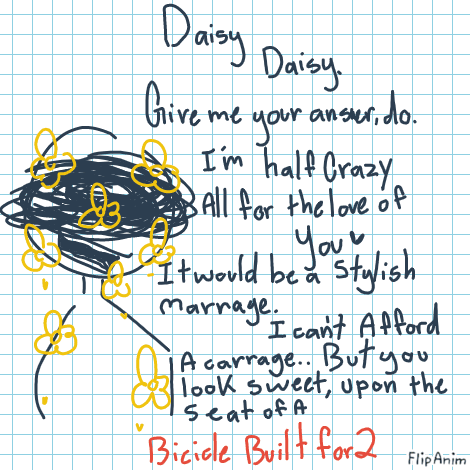 Daisy
Daisy.
Give me your answer, do.
I'm half Crazy
All for the love of
You
It would be a stylish
marrage.
I can't Afford
A carrage.. But you
look sweet, upon the
seat of A
Bicicle Built for 2
FlipAnim